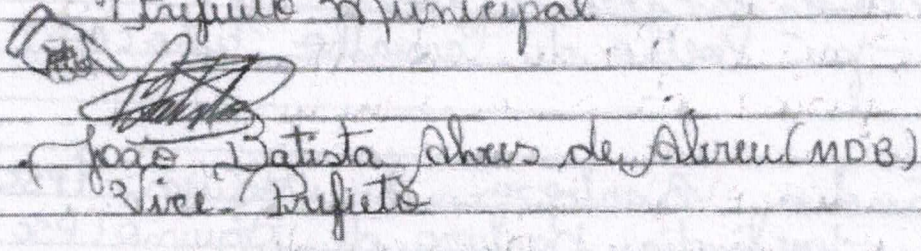 Prefeito Municipal
João Batista Alves de Abreu (MDB)
Vice-Prefeito